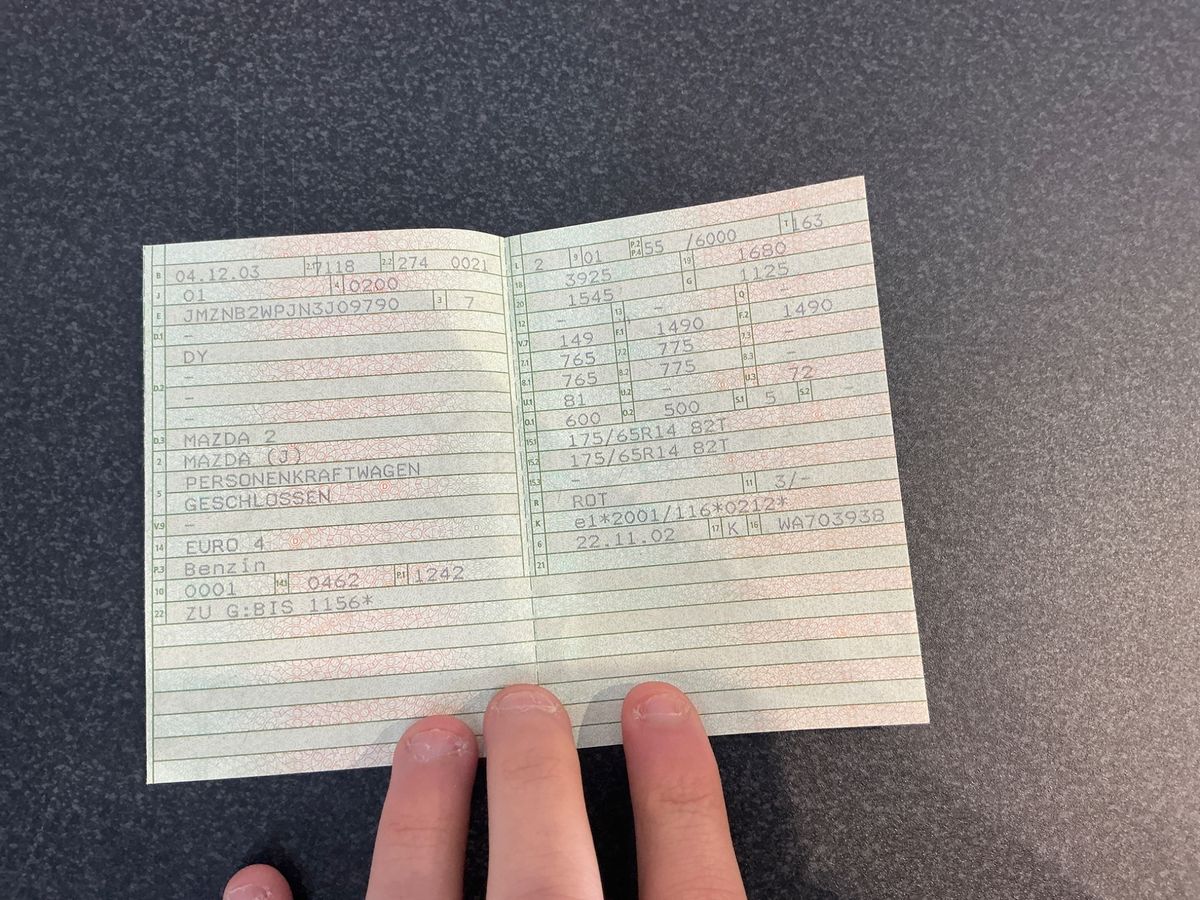 B 04.12.03 2.1 7118 2.2 274 0021
J 01 4 0200
E JMZNB2WPJN3J09790 3 7
D.1 –
DY
–
D.2 –
–
D.3 MAZDA 2
2 MAZDA (J)
5 PERSONENKRAFTWAGEN
GESCHLOSSEN
V.9 –
14 EURO 4
P.3 Benzin
10 0001 14.1 0462 P.1 1242
22 ZU G:BIS 1156*
L 2 9 01 P.2 P.4 55 /6000 T 163
18 3925 19 1680
20 1545 G 1125
12 – 13 – Q –
V.7 149 F.1 1490 F.2 1490
7.1 765 7.2 775 7.3 –
8.1 765 8.2 775 8.3 –
U.1 81 U.2 – U.3 72
O.1 600 O.2 500 S.1 5 S.2 –
15.1 175/65R14 82T
15.2 175/65R14 82T
15.3 –
R ROT 11 3/–
K e1*2001/116*0212*
6 22.11.02 17 K 16 WA703938
21